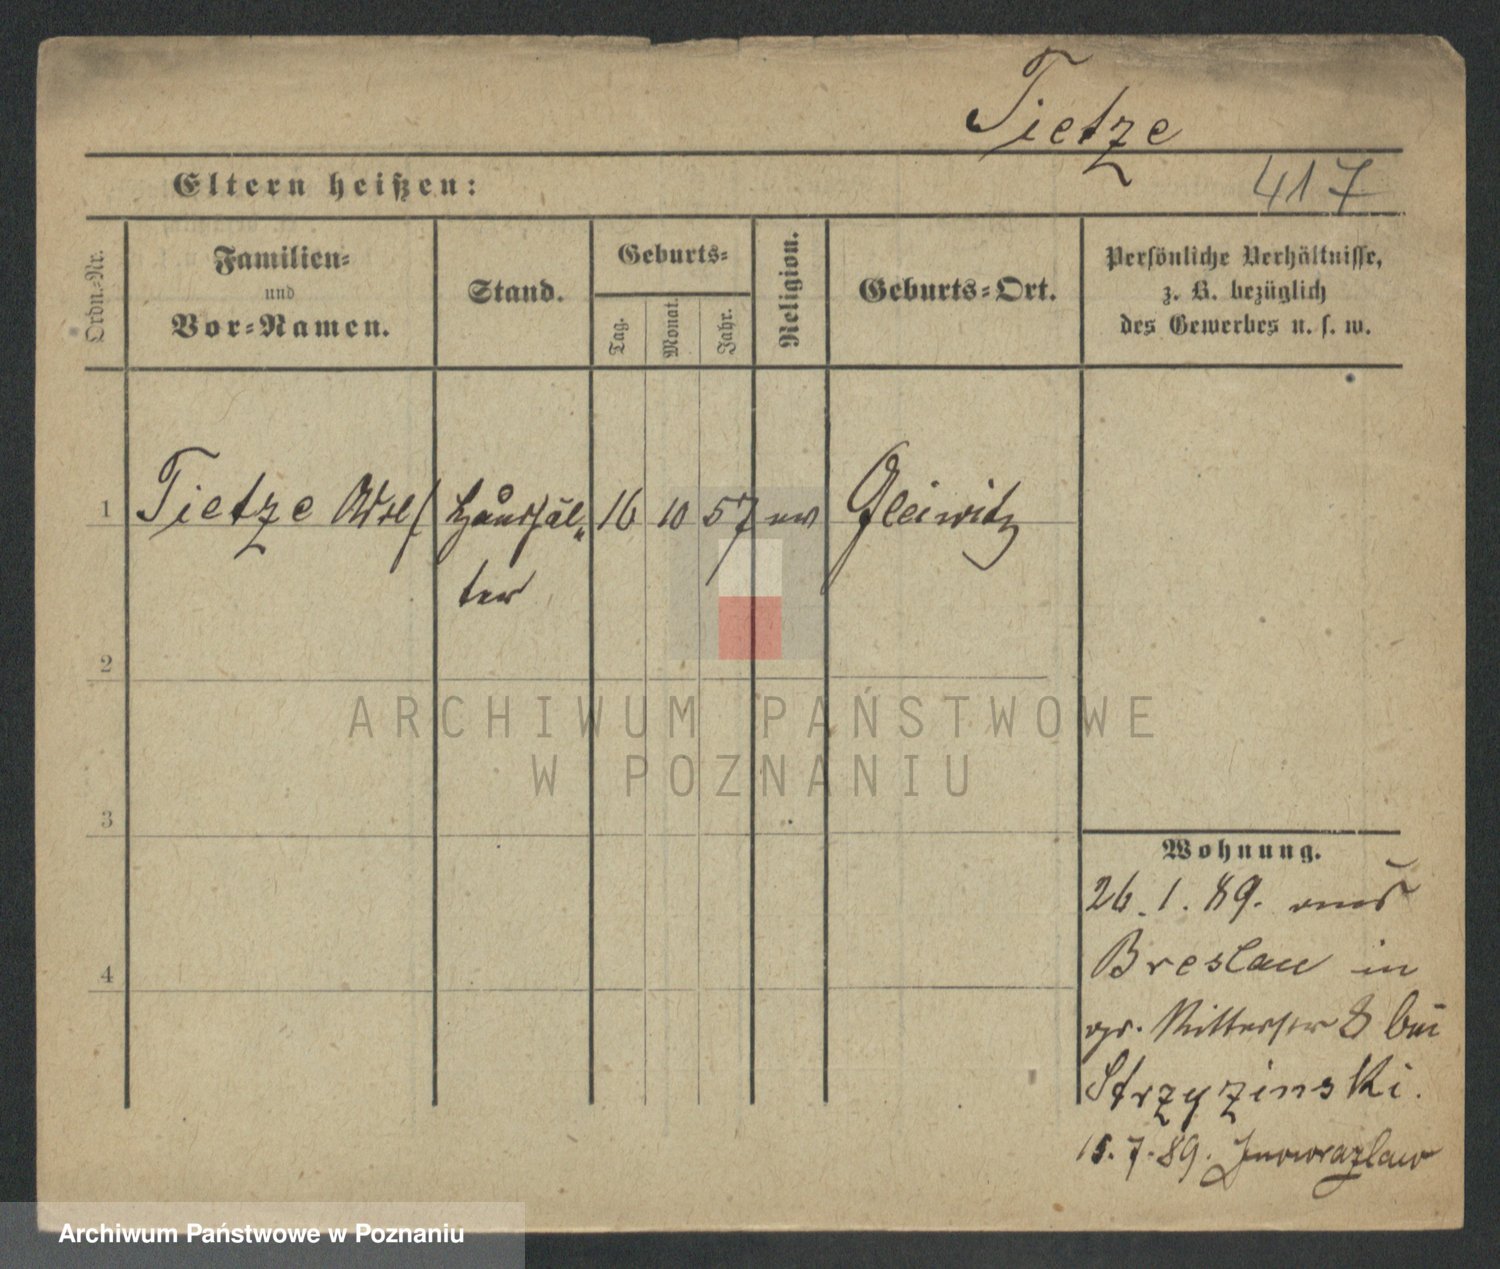 Tietze
Eltern heißen:
417
Ordn.-Nr.
Familien-
und
Vor-Namen.
Stand.
Geburts-
Tag.
Monat.
Jahr.
Religion.
Geburts-Ort.
Persönliche Verhältnisse,
z. B. bezüglich
des Gewerbes u. s. w.
1 Tietze Adolf Haushäl„ 16 10 57 ev Gleiwitz
ter
2
ARCHIWUM PAŃSTWOWE
W POZNANIU
3
Wohnung.
26.1.89. aus
Breslau in
4
gr. Ritterstr 8 bei
Strzyzinski.
15.7.89. Inowrazlaw
Archiwum Państwowe w Poznaniu